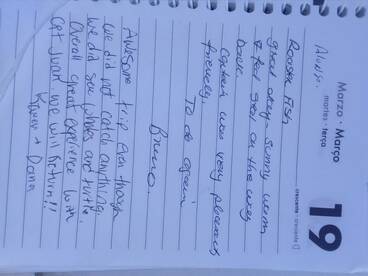 Marzo • Março
martes • terça
19
Rooster Fish
great day - sunny warm
on the way
Back
Captain was very pleasant
friendly.
To do again
Bruno.
Awesome trip even though
we did not catch anything.
We did see whales and turtle.
Overall great experience with
Cpt Juan. We will return!!
+ Dana